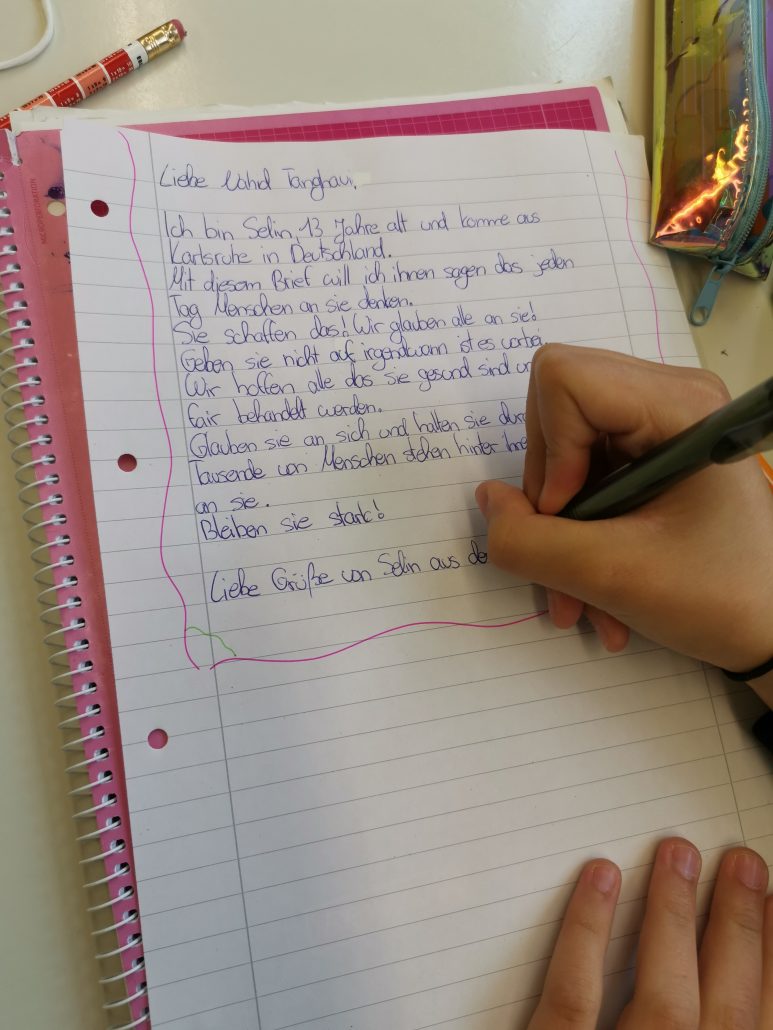 Liebe Nahid Tanghavi.
Ich bin Selin, 13 Jahre alt und komme aus
Karlsruhe in Deutschland.
Mit diesem Brief will ich ihnen sagen das jeden
Tag Menschen an sie denken.
Sie schaffen das! Wir glauben alle an sie!
Geben sie nicht auf irgendwann ist es vorbei.
Wir hoffen alle das sie gesund sind
fair behandelt werden.
Glauben sie an sich und halten sie
Tausende von Menschen stehen hinter
an sie.
Bleiben sie stark!
Liebe Grüße von Selin aus
MICROPERFORATION